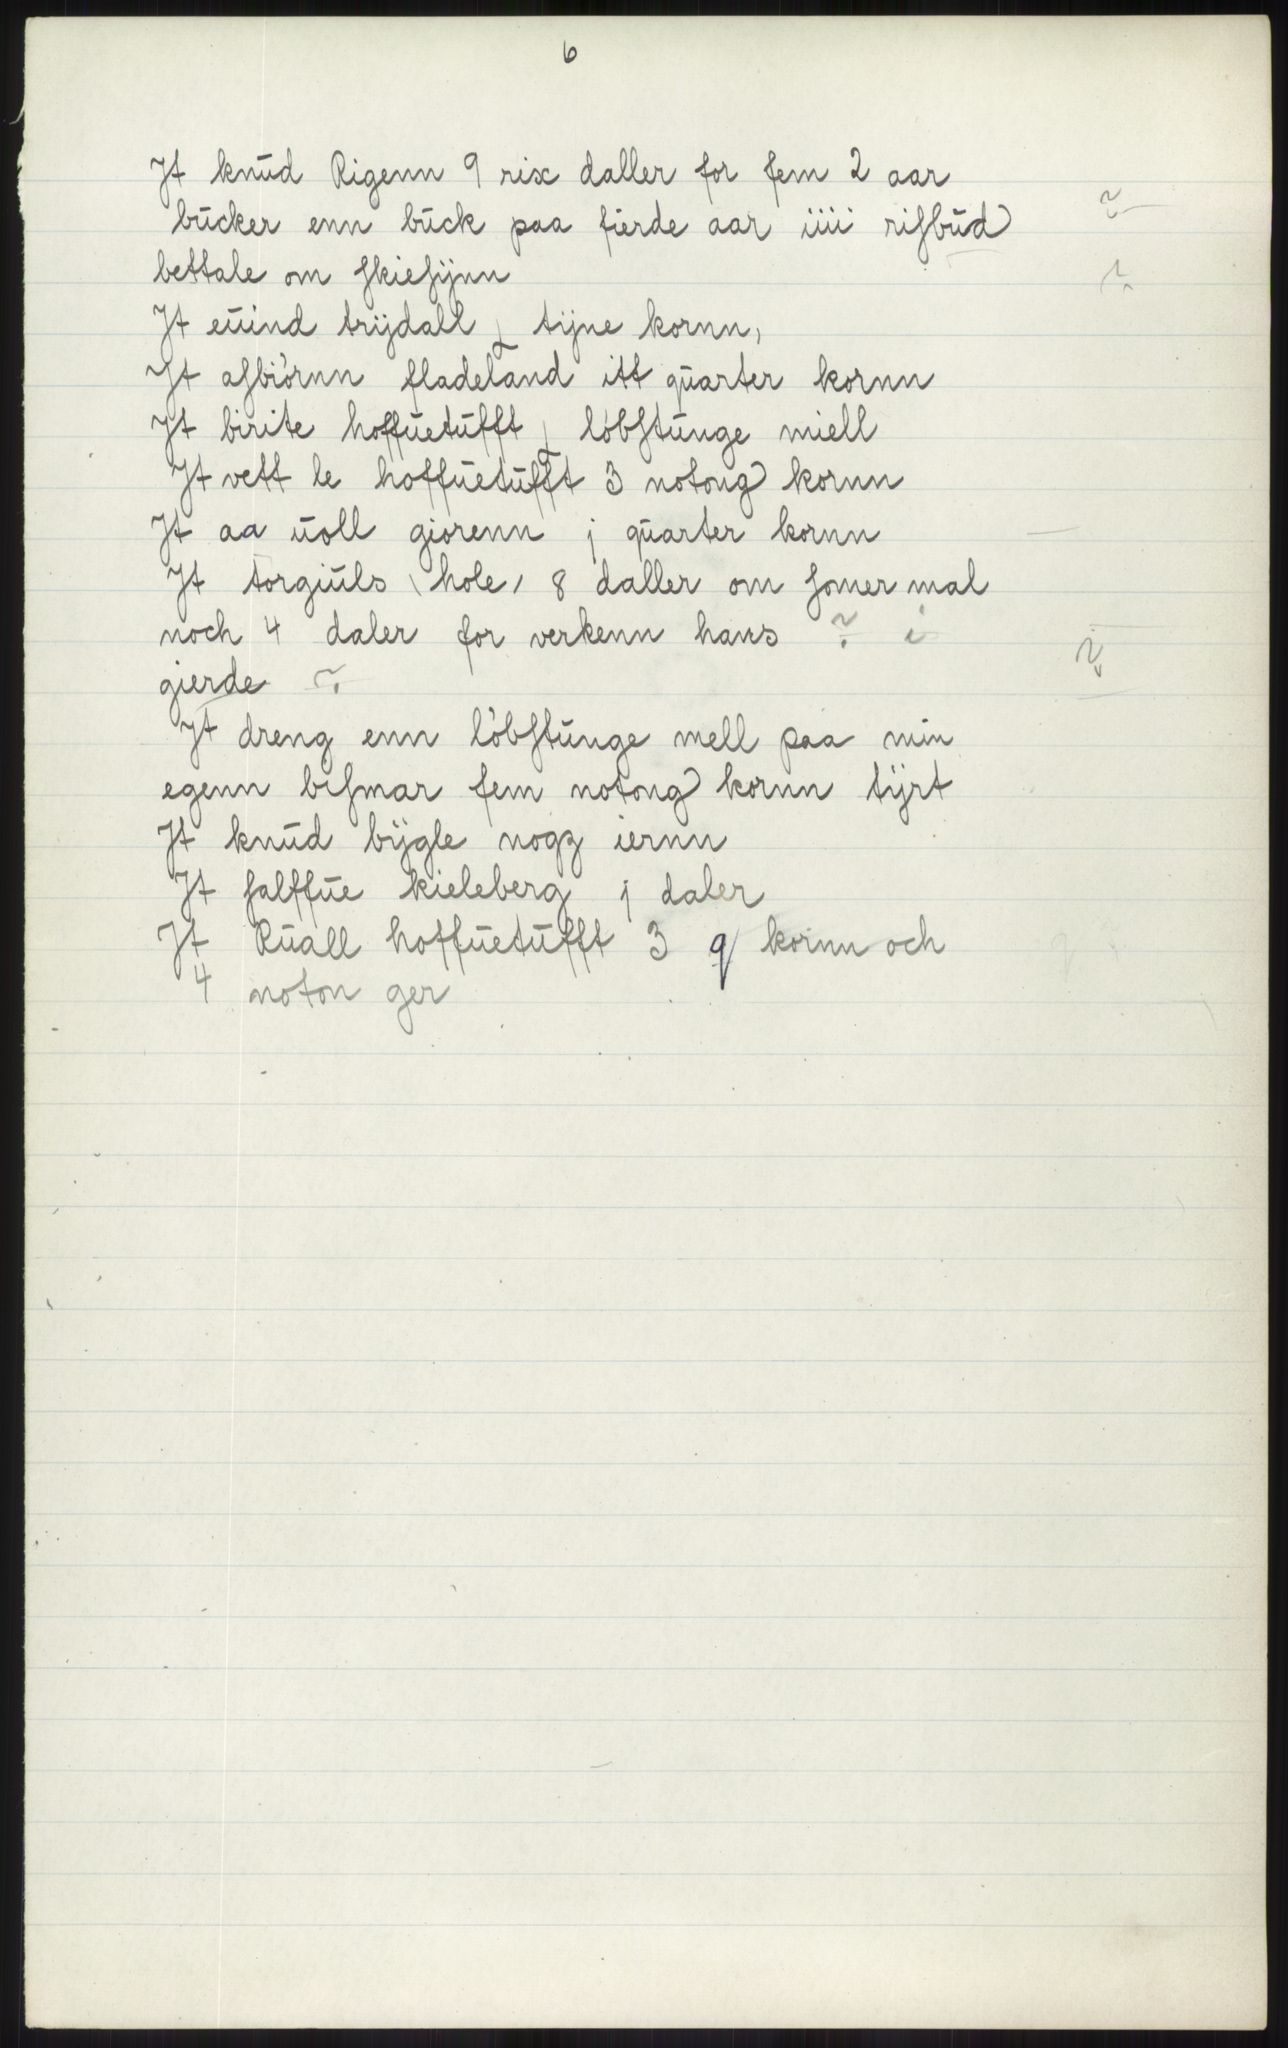 6
Jt knŭd Rigenn 9 rix daller for fem 2 aar
bŭcker enn bŭck paa fierde aar iiii risbŭd ?
bettale om skiesÿnn ?
Jt eŭind trÿdall tÿne kornn,
Jt asbiörnn fladeland itt qŭarter kornn
Jt birite hoffŭetŭfft löbstŭnge miell
Jt vett le hoffŭetŭfft 3 notong kornn
Jt aa ŭoll giorenn j qŭarter kornn
Jt torgiŭls hole 8 daller om somer mal
noch 4 daler for verkenn hans ? i ?
gierde ?
Jt dreng enn löbstŭnge mell paa min
egenn bismar fem notong kornn tÿrt
Jt knŭd bÿgle nogz iernn
Jt salffŭe kieleberg j daler
Jt Rŭall hoffŭetŭfft 3 q kornn och
4 noton ger